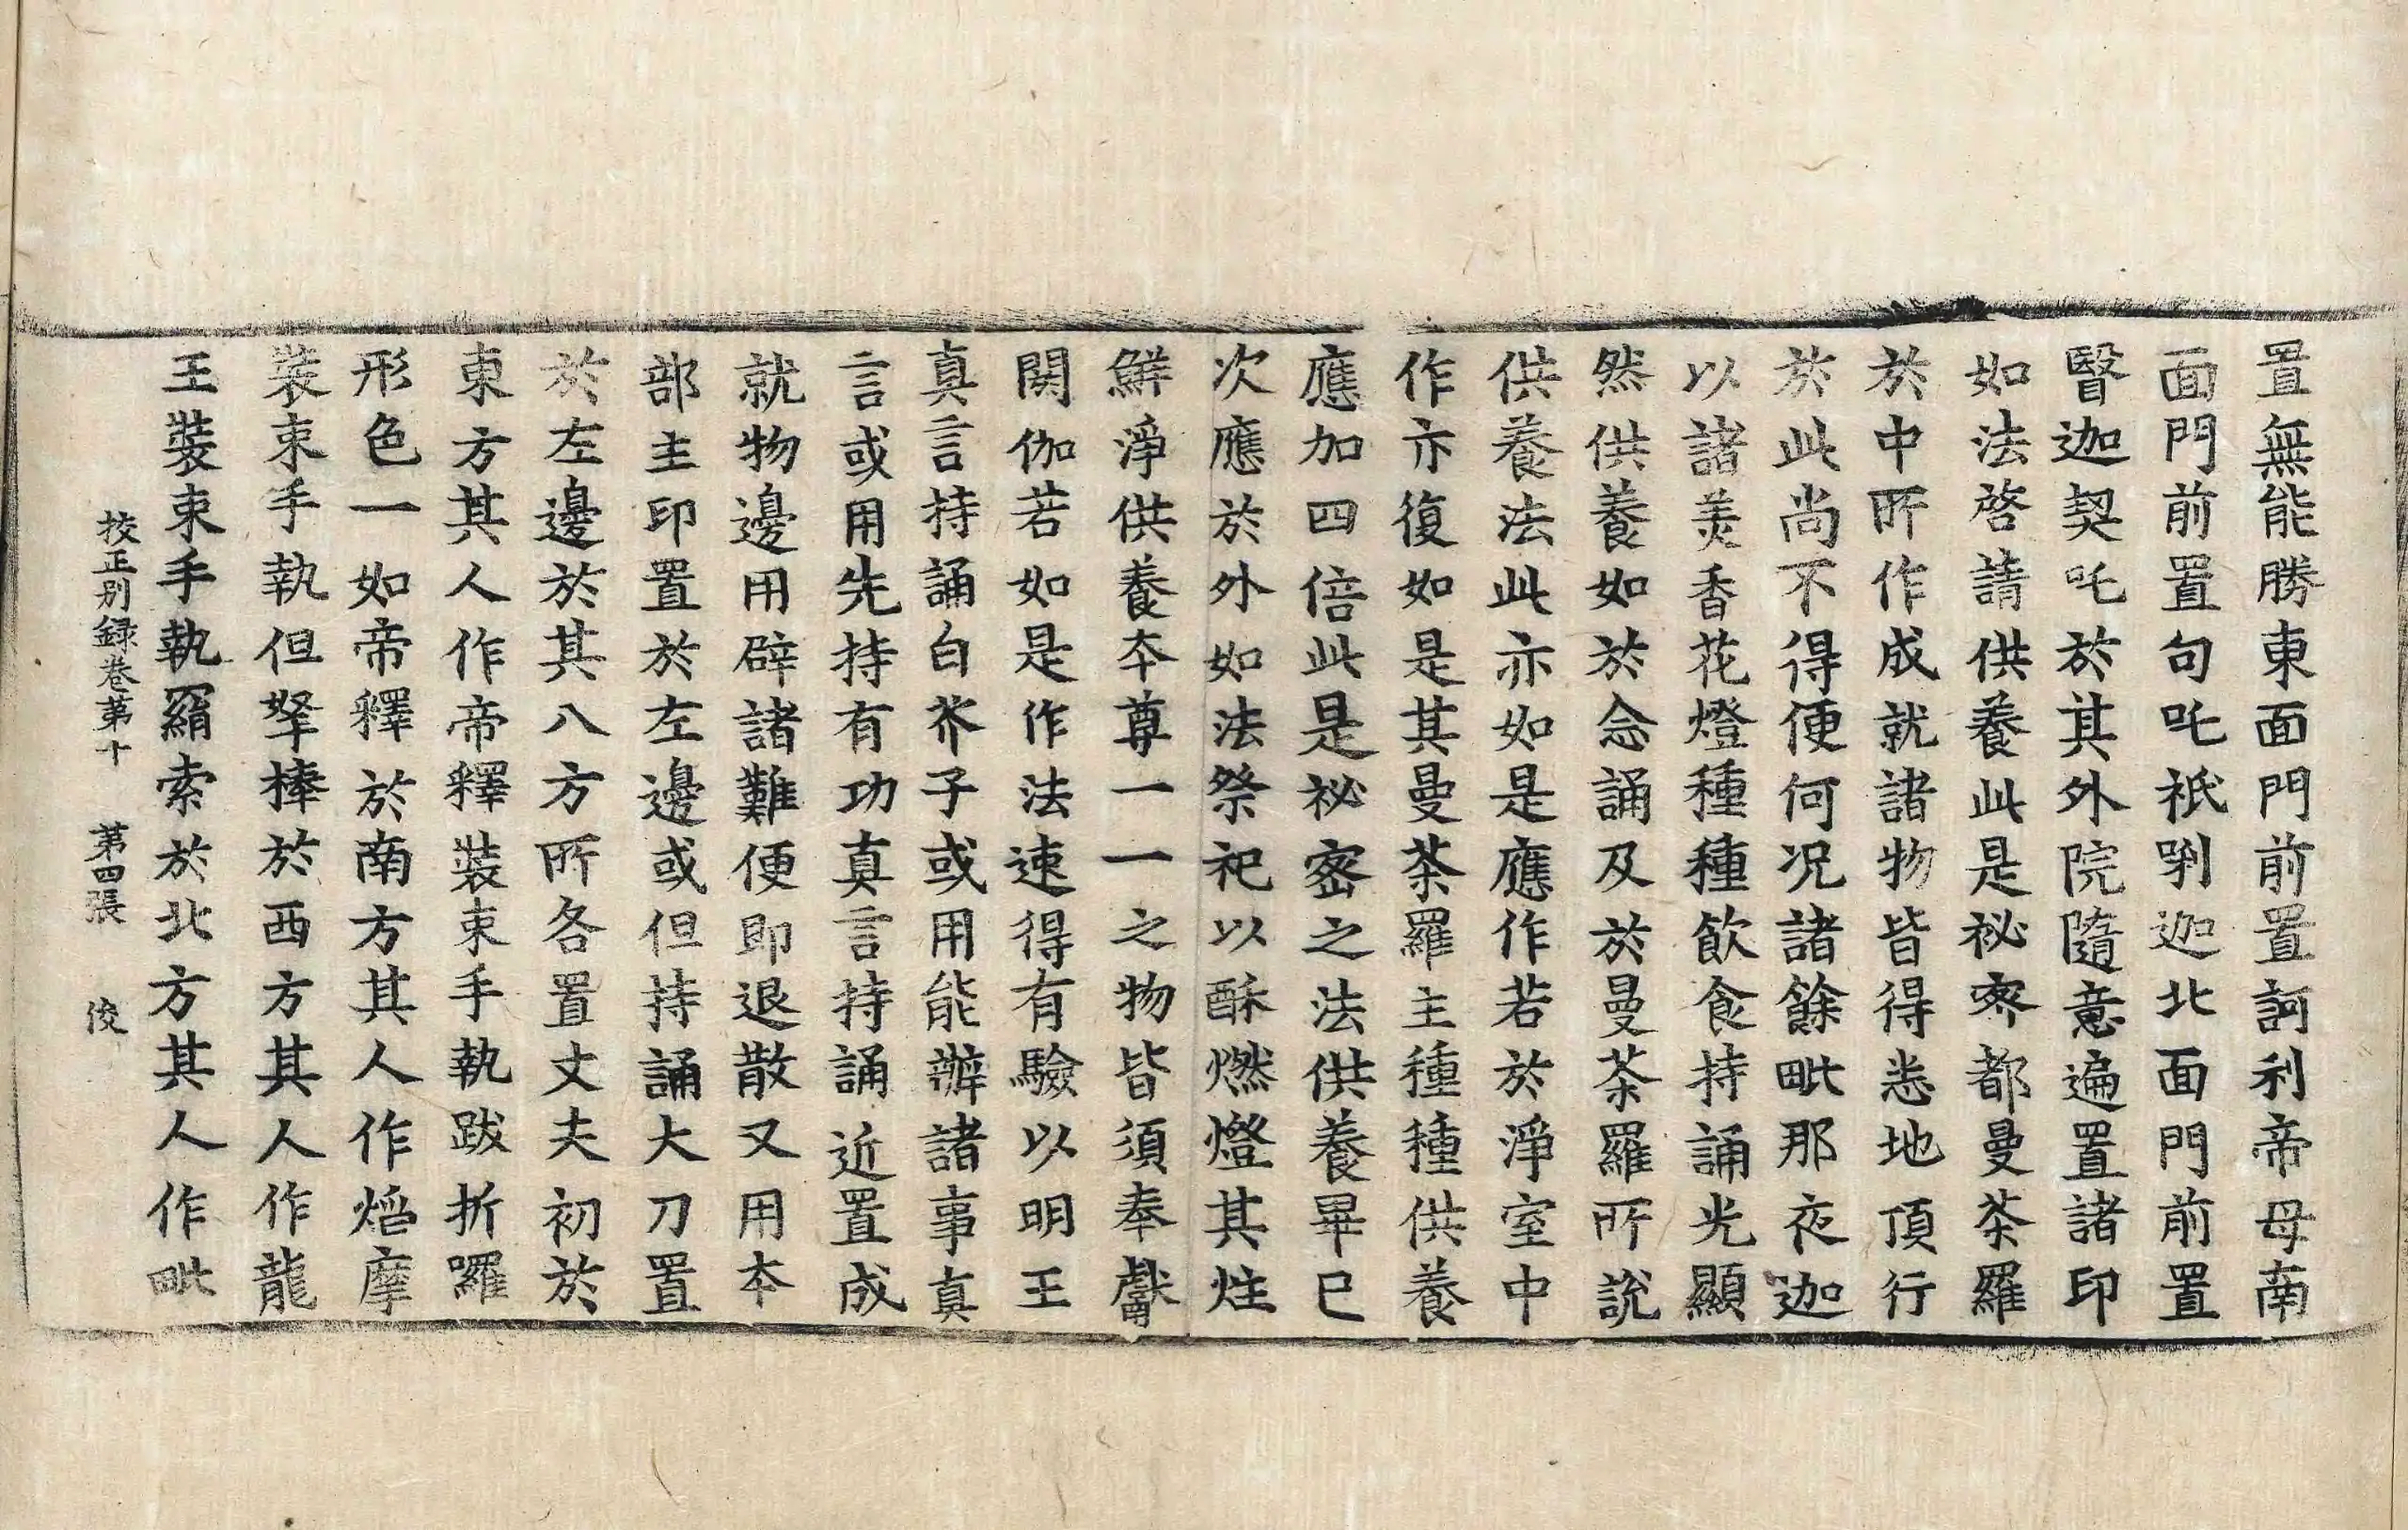 置無能勝東面門前置訶利帝母南
面門前置句吒祇唎迦北面門前置
醫迦契吒於其外院隨意遍置諸印
如法啓請供養此是祕密都曼荼羅
於中所作成就諸物皆得悉地頂行
於此尚不得便何况諸餘毗那夜迦
以諸美香花燈種種飲食持誦光顯
然供養如於念誦及於曼荼羅所說
供養法此亦如是應作若於淨室中
作亦復如是其曼荼羅主種種供養
應加四倍此是祕密之法供養畢已
次應於外如法祭祀以酥燃燈其炷
鮮淨供養本尊一一之物皆須奉獻
閼伽若如是作法速得有驗以明王
真言持誦白芥子或用能辦諸事真
言或用先持有功真言持誦近置成
就物邊用辟諸難便即退散又用本
部主印置於左邊或但持誦大刀置
於左邊於其八方所各置丈夫初於
東方其人作帝釋裝束手執跋折囉
形色一如帝釋於南方其人作焰摩
裝束手執但拏棒於西方其人作龍
王裝束手執羂索於北方其人作毗
校正別録卷第十　第四張　俊